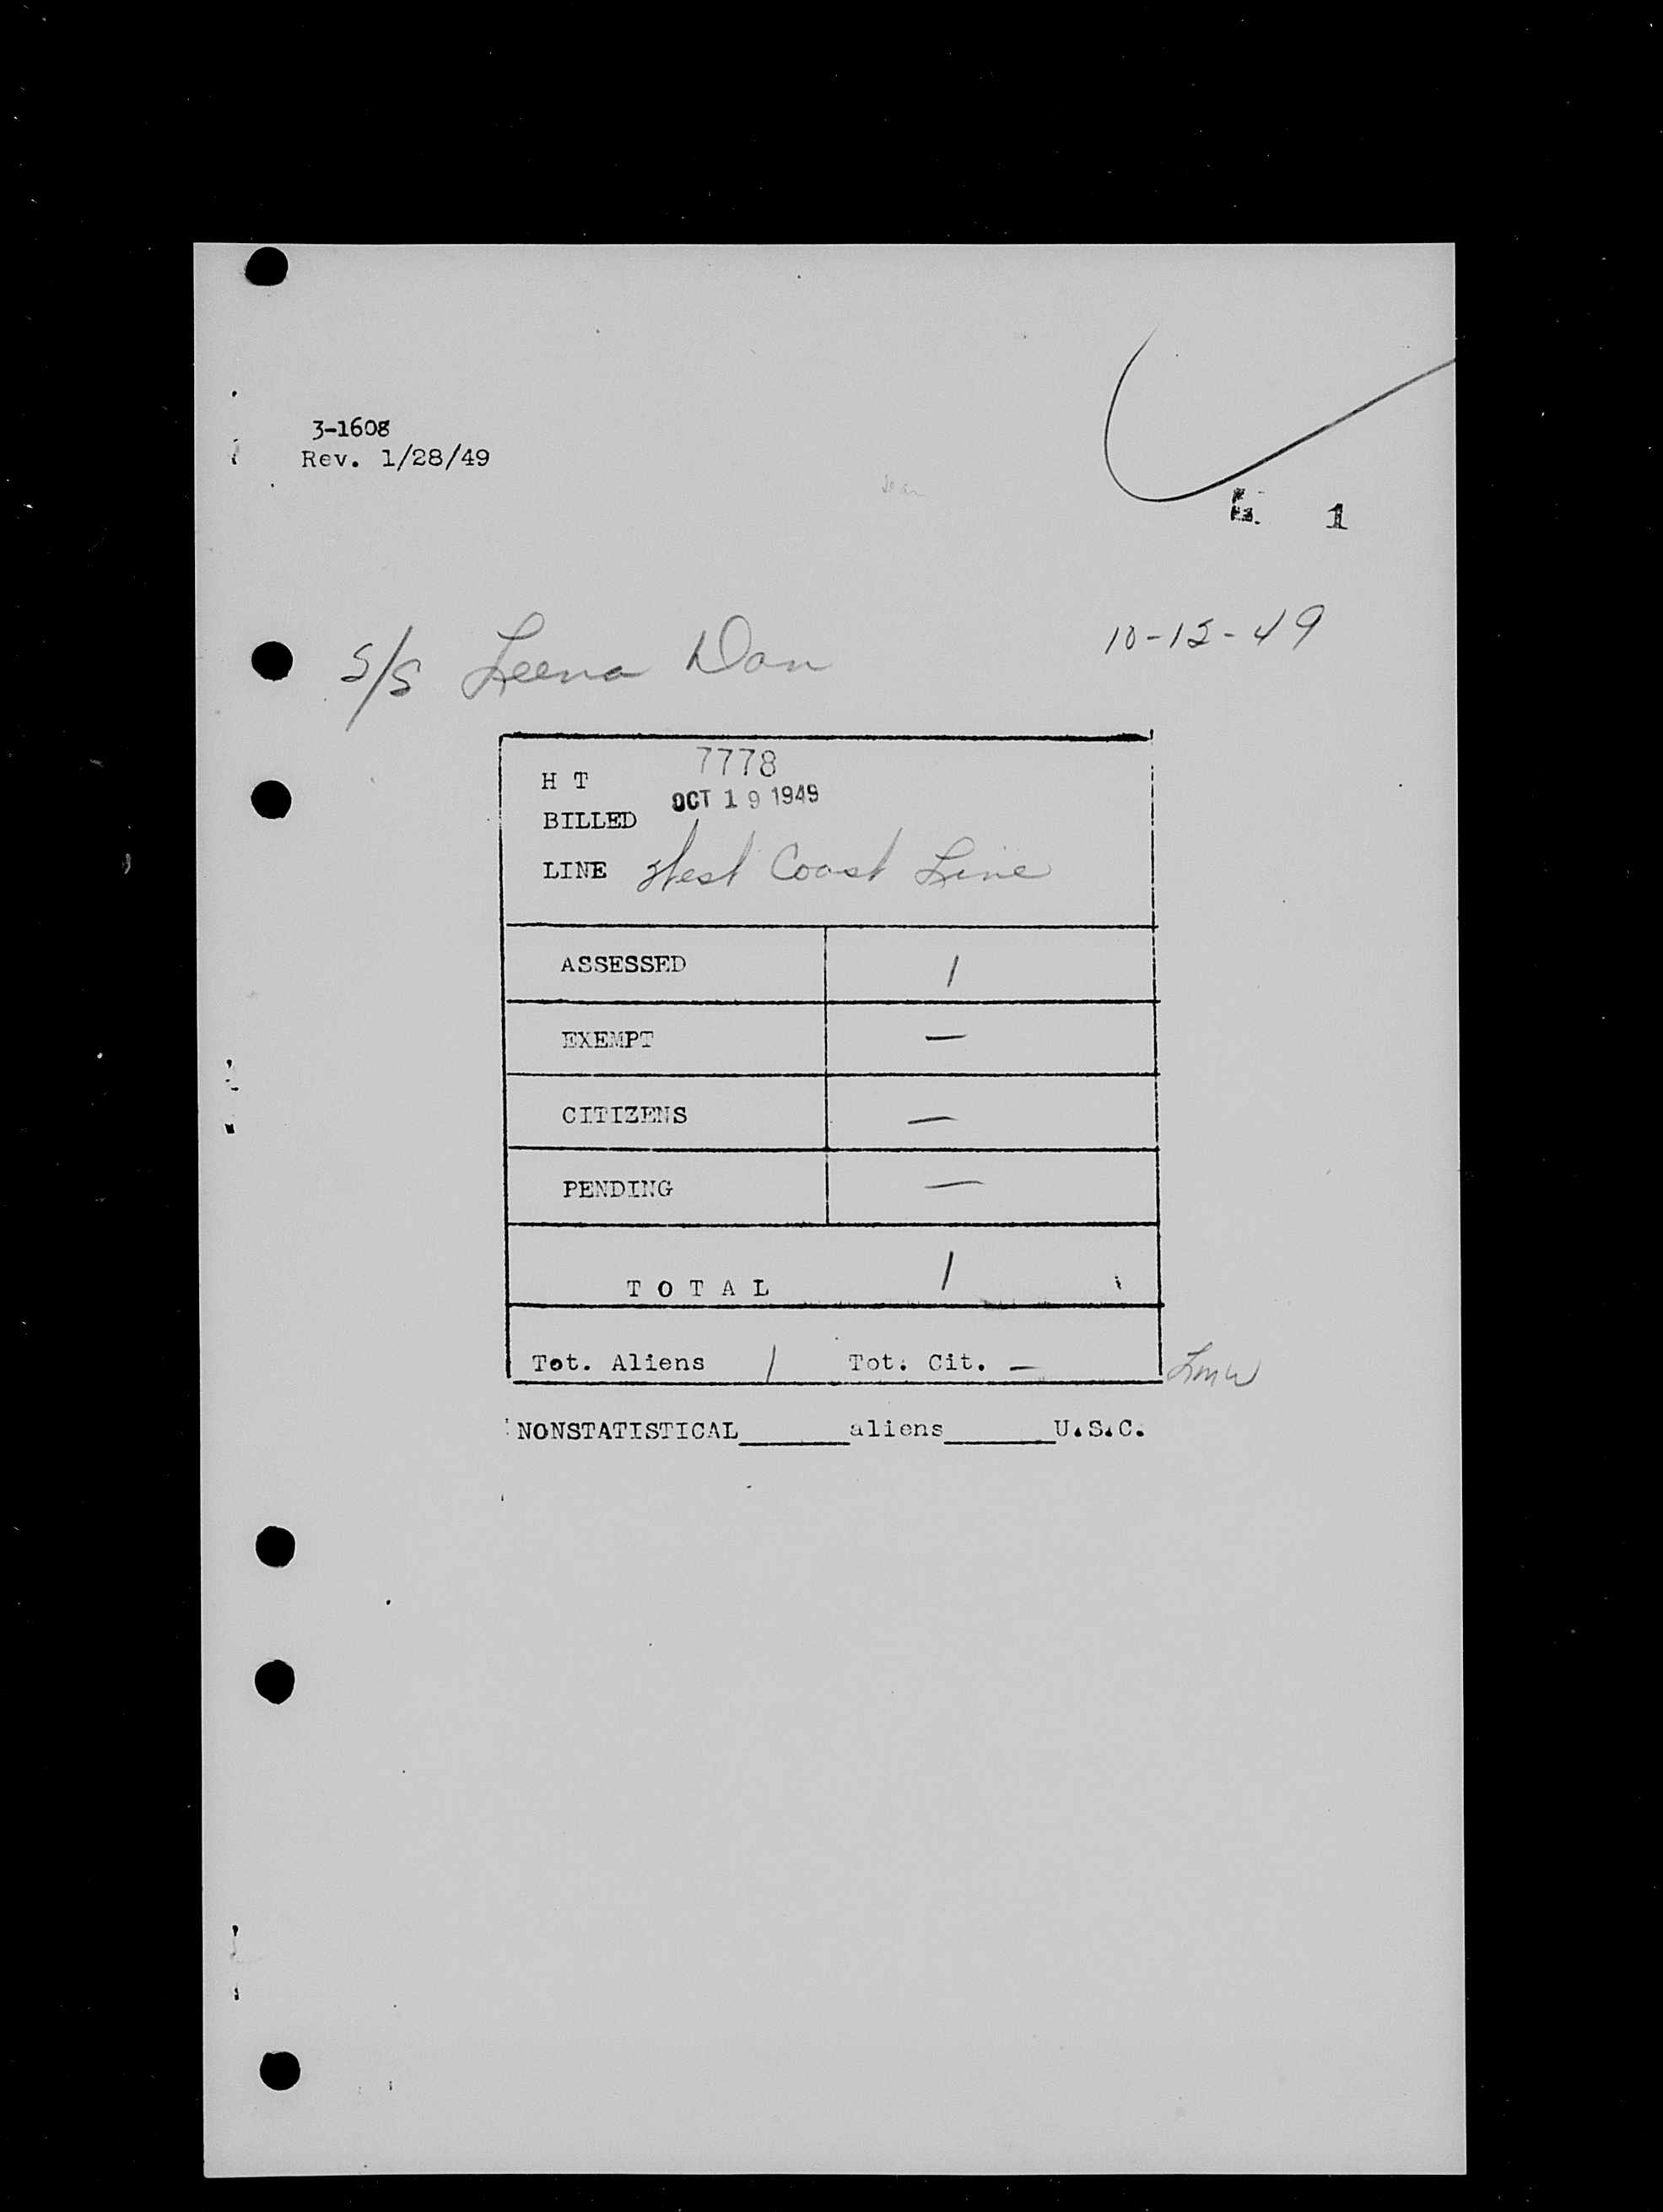 3-1608
Rev. 1/28/49
1
S/S Leena Dan
10-12-49
H T 7778
BILLED OCT 19 1949
LINE West Coast Line
ASSESSED 1
EXEMPT —
CITIZENS —
PENDING —
T O T A L 1
Tot. Aliens 1 Tot. Cit. —
NONSTATISTICAL______aliens______U.S.C.